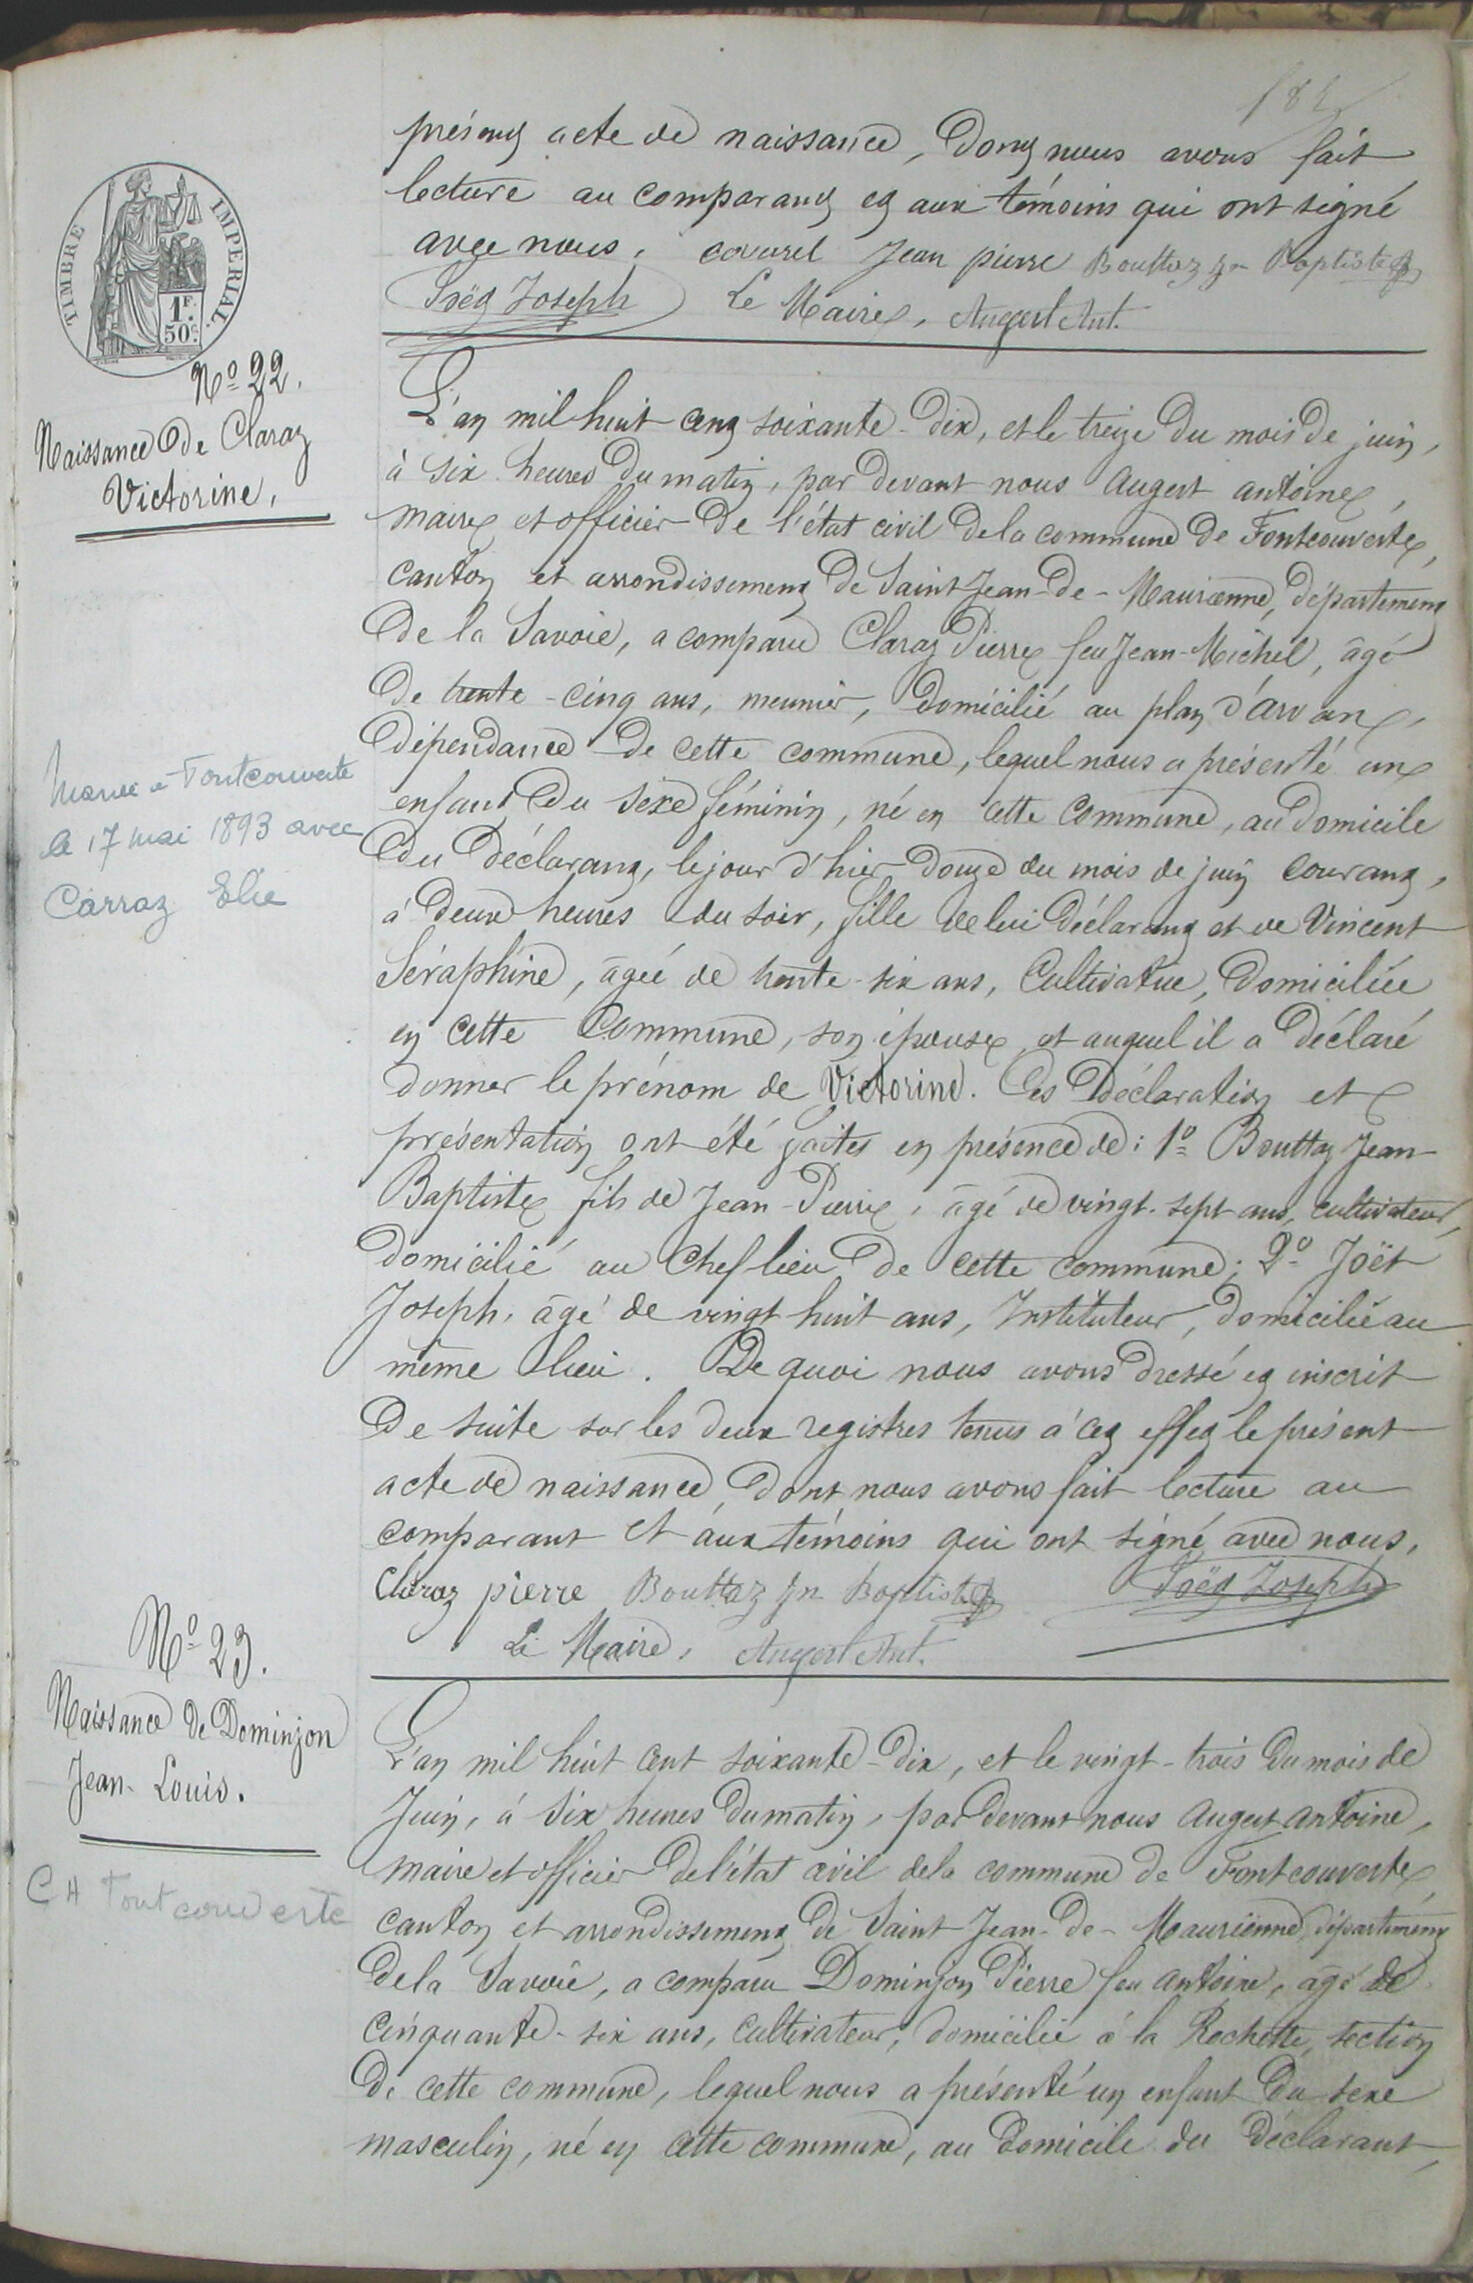 présent acte de naissance, dont nous avons fait
lecture au comparant et aux témoins qui ont signé
avec nous. Jean pierre Bouttaz Jn Baptiste
Joët Joseph Le Maire, Augert Ant.
TIMBRE IMPERIAL
1F.
50c.
No 22.
Naissance de Claraz
Victorine,
L'an mil huit cent soixante-dix, et le treize du mois de juin,
à six heures du matin, par devant nous Augert antoine,
maire et officier de l'état civil de la commune de Fontcouverte,
canton et arrondissement de Saint-Jean-de-Maurienne, département
de la Savoie, a comparu Claraz Pierre feu Jean-Michel, âgé
de trente-cinq ans, meunier, domicilié au plan d'arvan,
dépendance de cette commune, lequel nous a présenté un
enfant du sexe féminin, né en cette commune, au domicile
du déclarant, le jour d'hier douze du mois de juin courant,
à deux heures du soir, fille de lui déclarant et de Vincent
Séraphine, âgée de trente-six ans, Cultivatrice, domiciliée
en cette commune, son épouse, et auquel il a déclaré
donner le prénom de Victorine. Ces déclaration et
présentation ont été faites en présence de: 1o Bouttaz Jean-
Baptiste fils de Jean-Pierre, âgé de vingt-sept ans, cultivateur,
domicilié au Chef lieu de cette commune; 2o Joët
Joseph, âgé de vingt huit ans, Instituteur, domicilié au
même lieu. De quoi nous avons dressé et inscrit
de suite sur les deux registres tenus à cet effet le présent
acte de naissance, dont nous avons fait lecture au
comparant et aux témoins qui ont signé avec nous,
Claraz pierre Bouttaz Jn Baptiste Joët Joseph
Le Maire, Augert Ant.
Mariée à Fontcouverte
le 17 mai 1893 avec
Carraz Elie
No 23.
Naissance de Dominjon
Jean-Louis.
CH Fontcouverte
L'an mil huit cent soixante-dix, et le vingt-trois du mois de
Juin, à six heures du matin, par devant nous Augert antoine,
maire et officier de l'état civil de la commune de Fontcouverte,
canton et arrondissement de Saint-Jean-de-Maurienne, département
de la Savoie, a comparu Dominjon Pierre feu antoine, âgé de
cinquante-six ans, cultivateur, domicilié à la Rochette, section
de cette commune, lequel nous a présenté un enfant du sexe
masculin, né en cette commune, au domicile du déclarant,